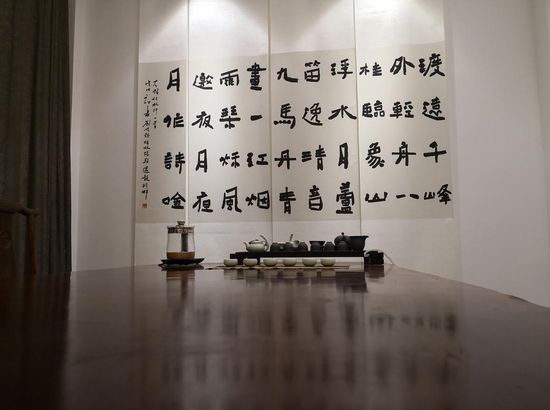 渡遠千峰
外輕舟八
桂臨象山
浮水月蘆
笛逸清音
九馬丹青
畫一江烟
雨琴秋風
邀夜月夜
月作詩唫